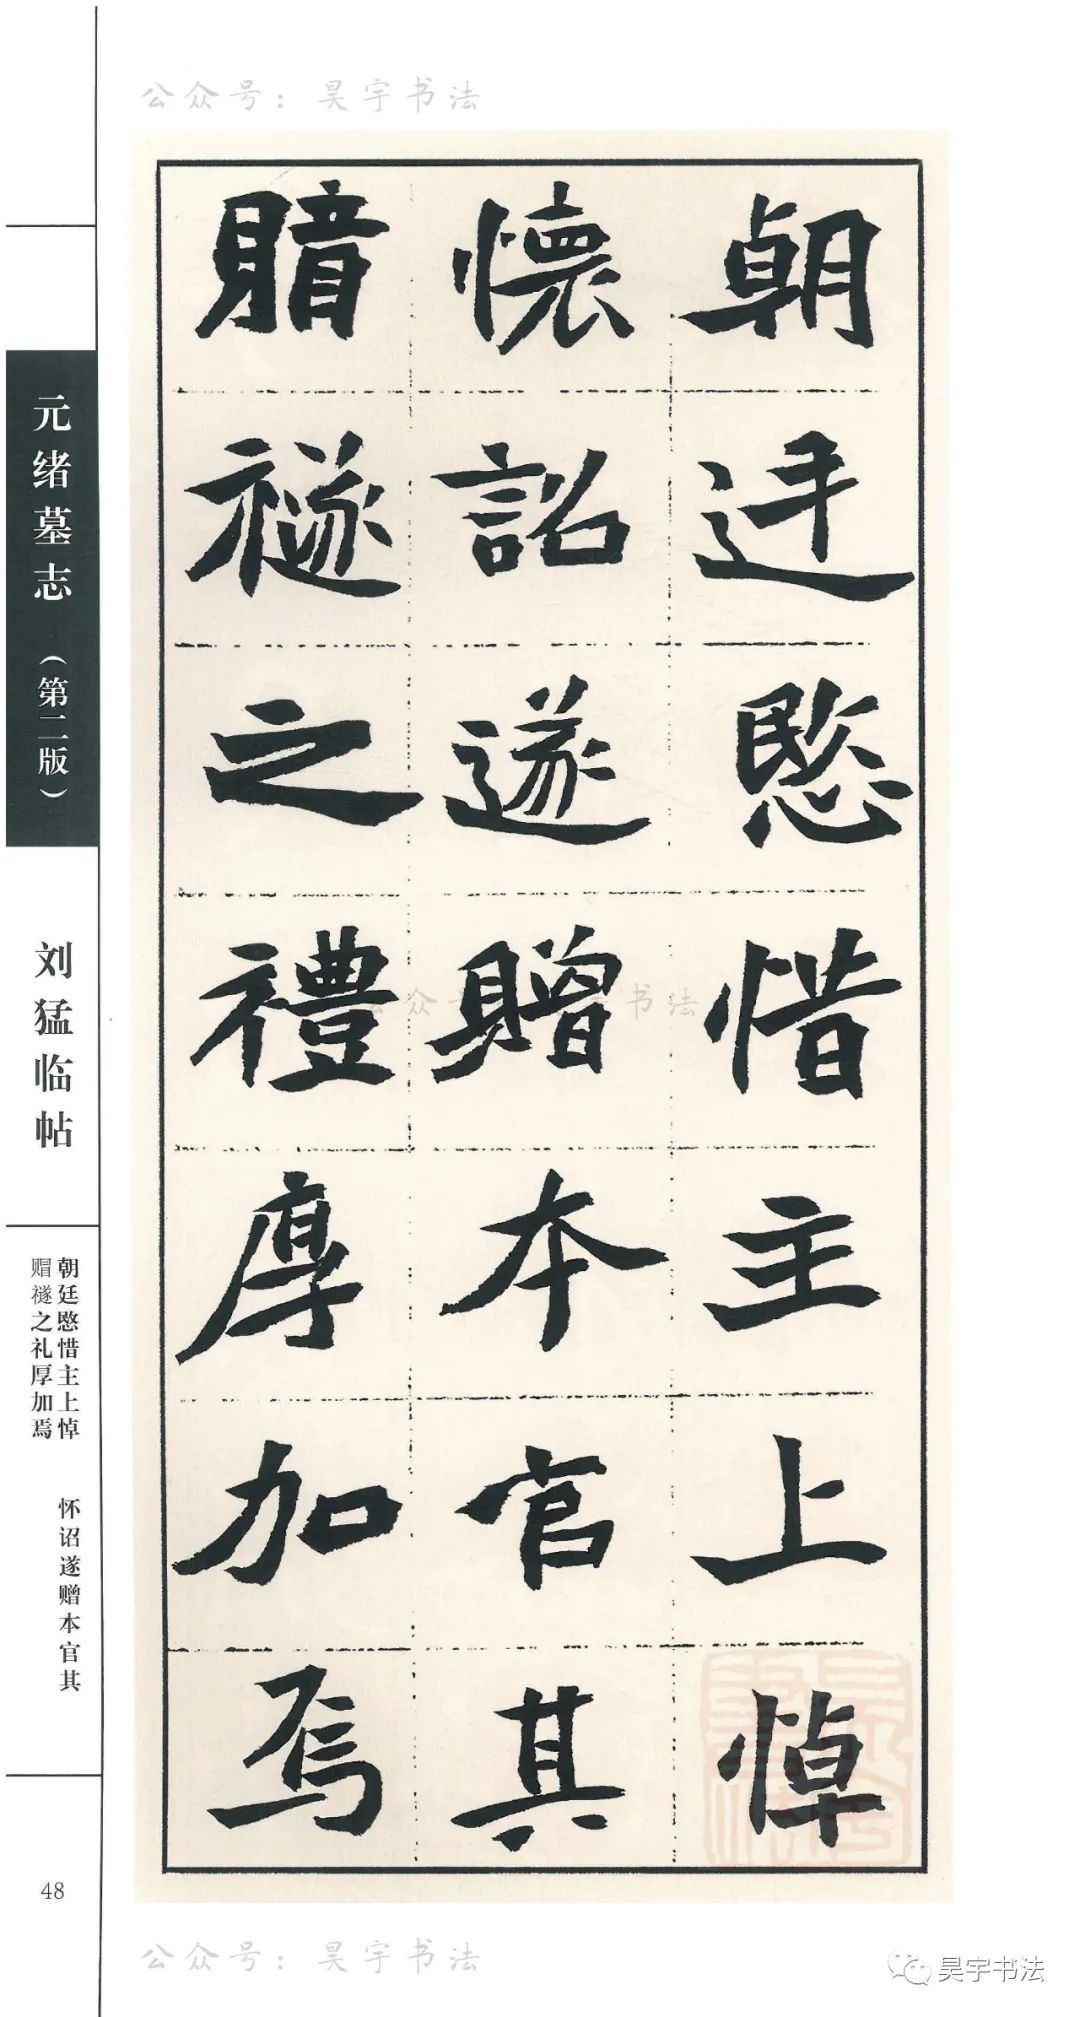 公众号：昊宇书法
朝廷愍惜主上悼
懷詔遂贈本官其
賵襚之禮厚加焉
公众号：昊宇书法
元绪墓志（第二版）
刘猛临帖
朝廷愍惜主上悼
赗襚之礼厚加焉
怀诏遂赠本官其
48
公众号：昊宇书法
昊宇书法